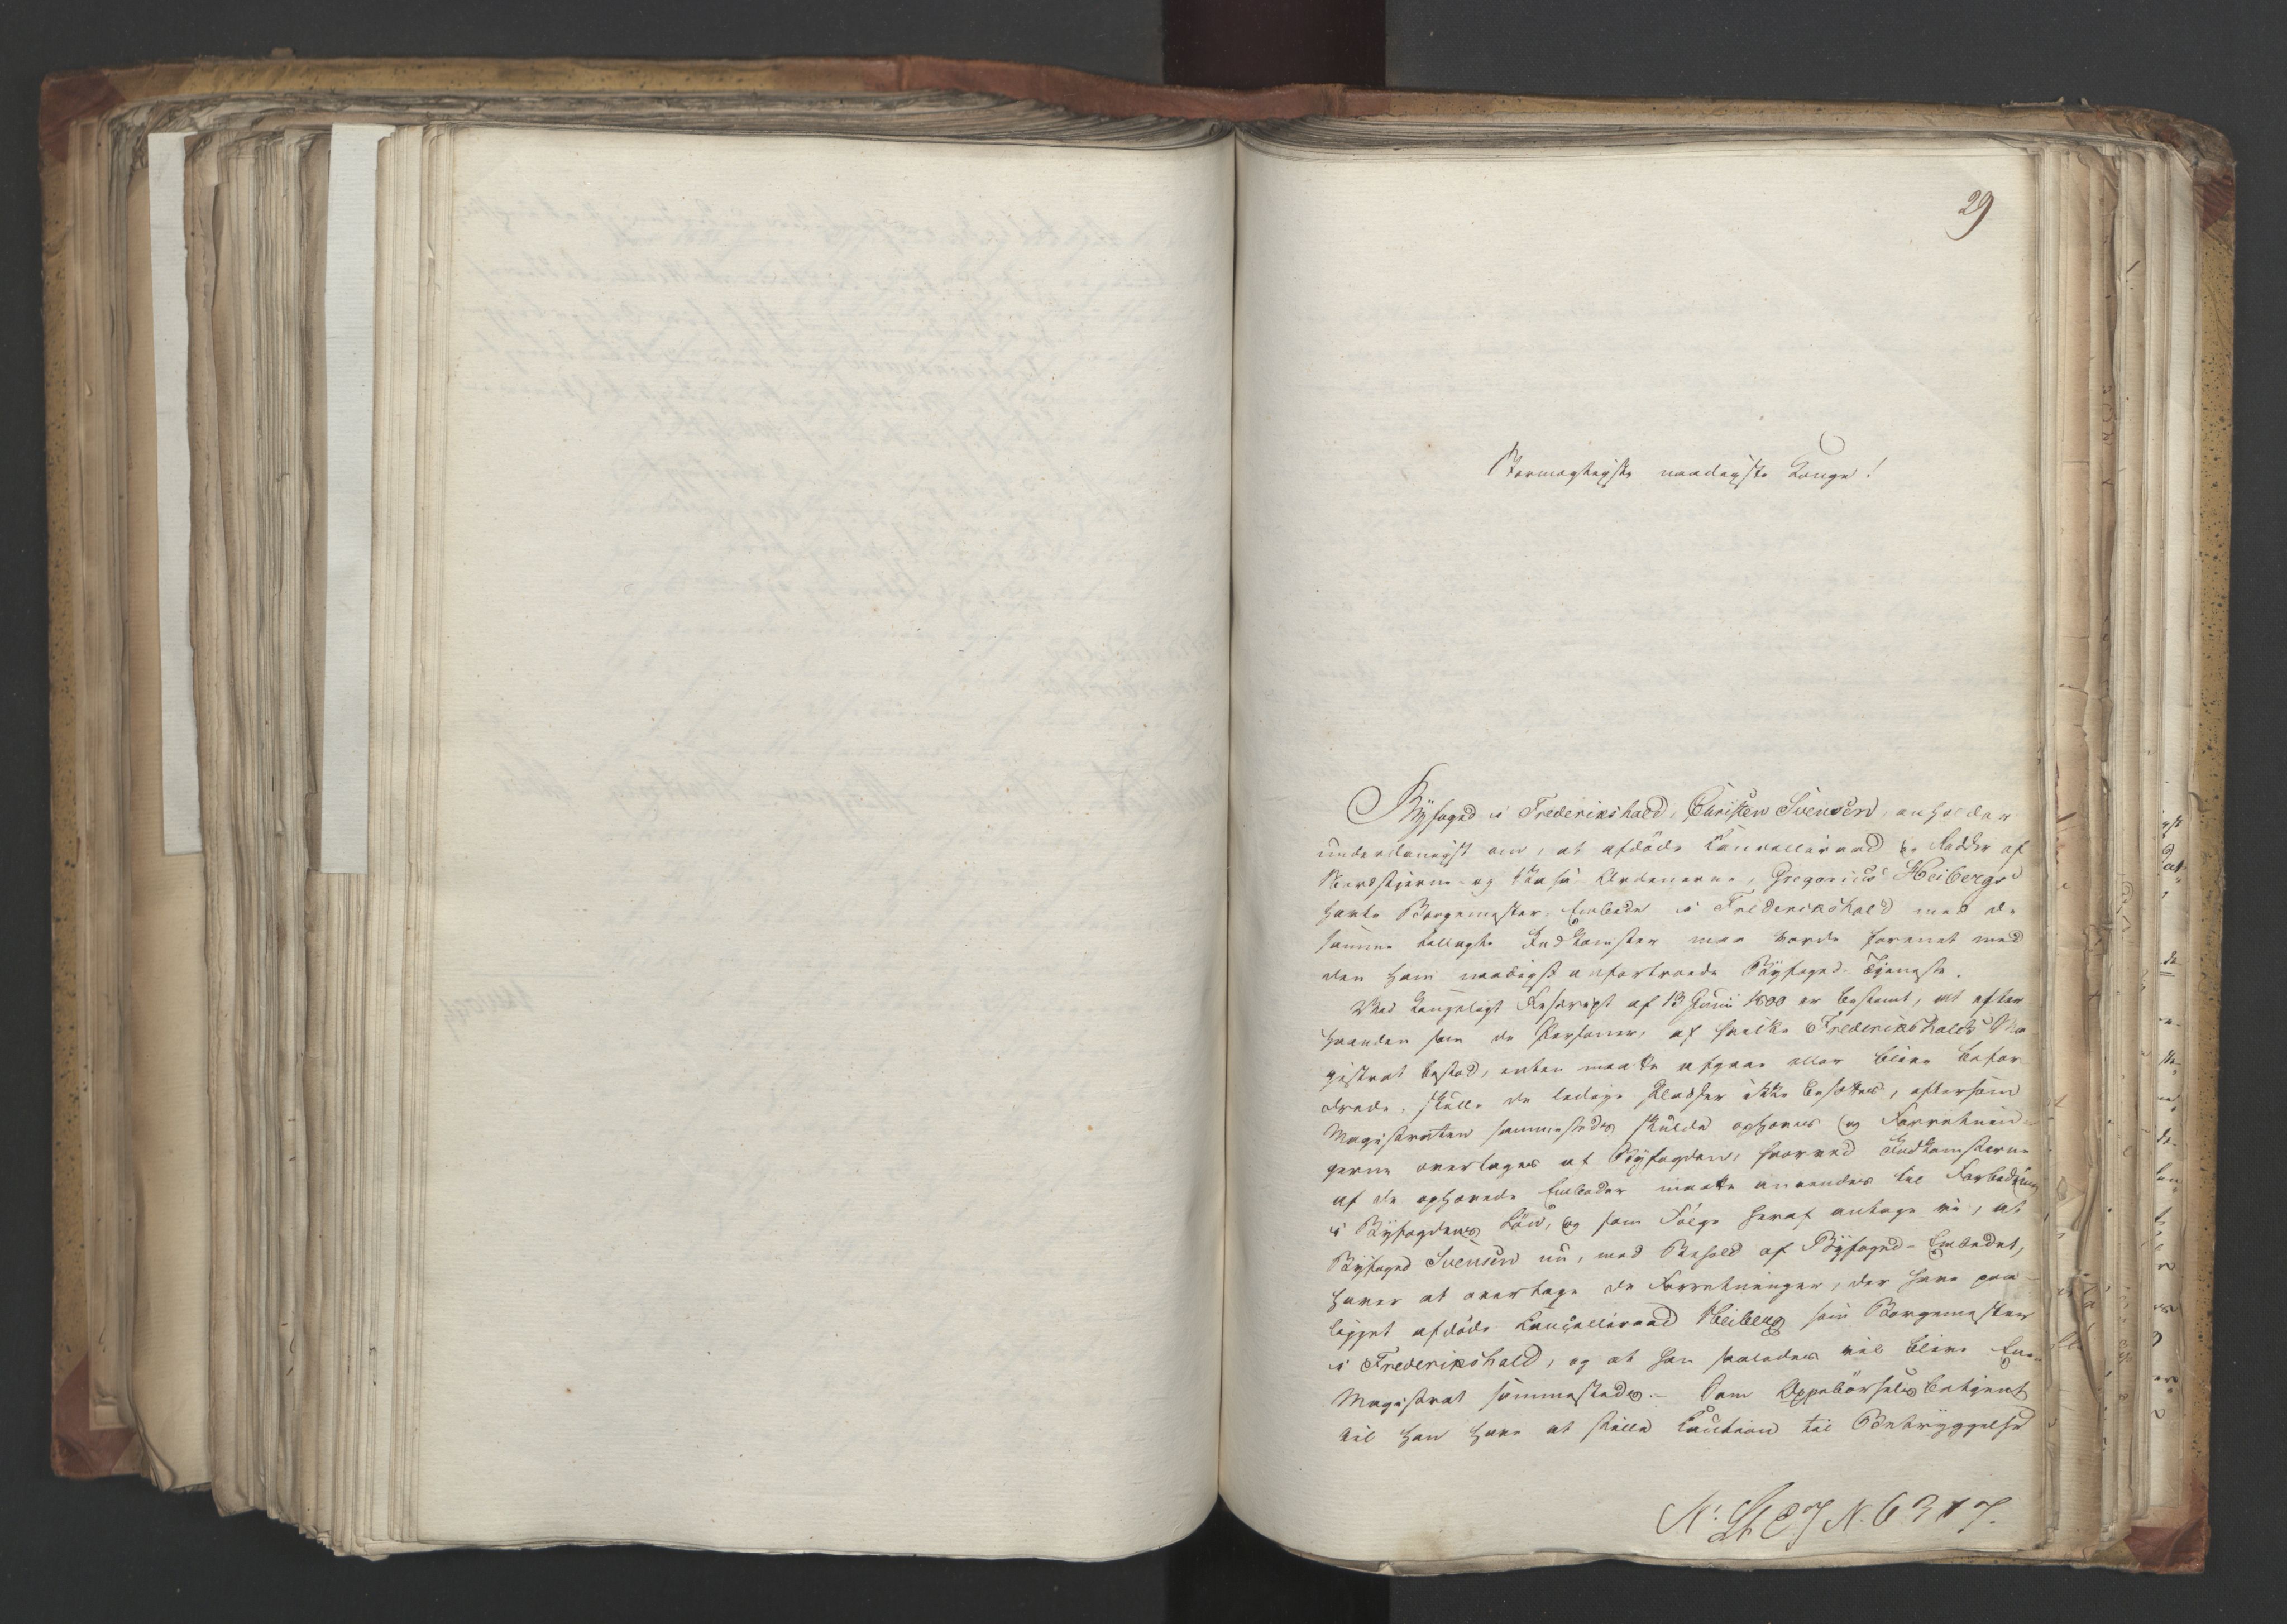 29
Stormægtigste naadigste Konge!
Byfoged i Frederikshald, Christen Svensen, anholder
underdanigst om, at afdöde Kancelliraad og Ridder af
Nordstjerne- og Vasa-Ordenerne, Gregorius Heibergs
havte Borgemester-Embede i Frederikshald med de
samme tillagte Indkomster maa vorde forenet med
den ham naadigst anfortroede Byfoged-Tjeneste.
Ved Kongeligt Rescript af 13 Junii 1800 er bestemt, at efter
haanden som de Personer, af hvilke Frederikshalds Ma-
gistrat bestod, enten maatte afgaae eller blive befor-
drede, skulle de ledige Pladser ikke besættes, eftersom
Magistraten sammesteds skulde ophøres og Forretnin-
gerne overtages af Byfogden, hvorved Indkomsterne
af de ophørede Embeder maatte anvendes til Forbedring
i Byfogdens Lön, og som Fölge heraf antage vi, at
Byfoged Svensen nu, med Behold af Byfoged-Embedet,
haver at overtage de Forretninger, der have paa-
ligget afdöde Kancelliraad Heiberg som Borgemester
i Frederikshald, og at han saaledes vil blive Ene-
Magistrat sammesteds.- Som Oppebörselsbetjent
vil han have at stille Caution til Betryggelse
N. 6317.